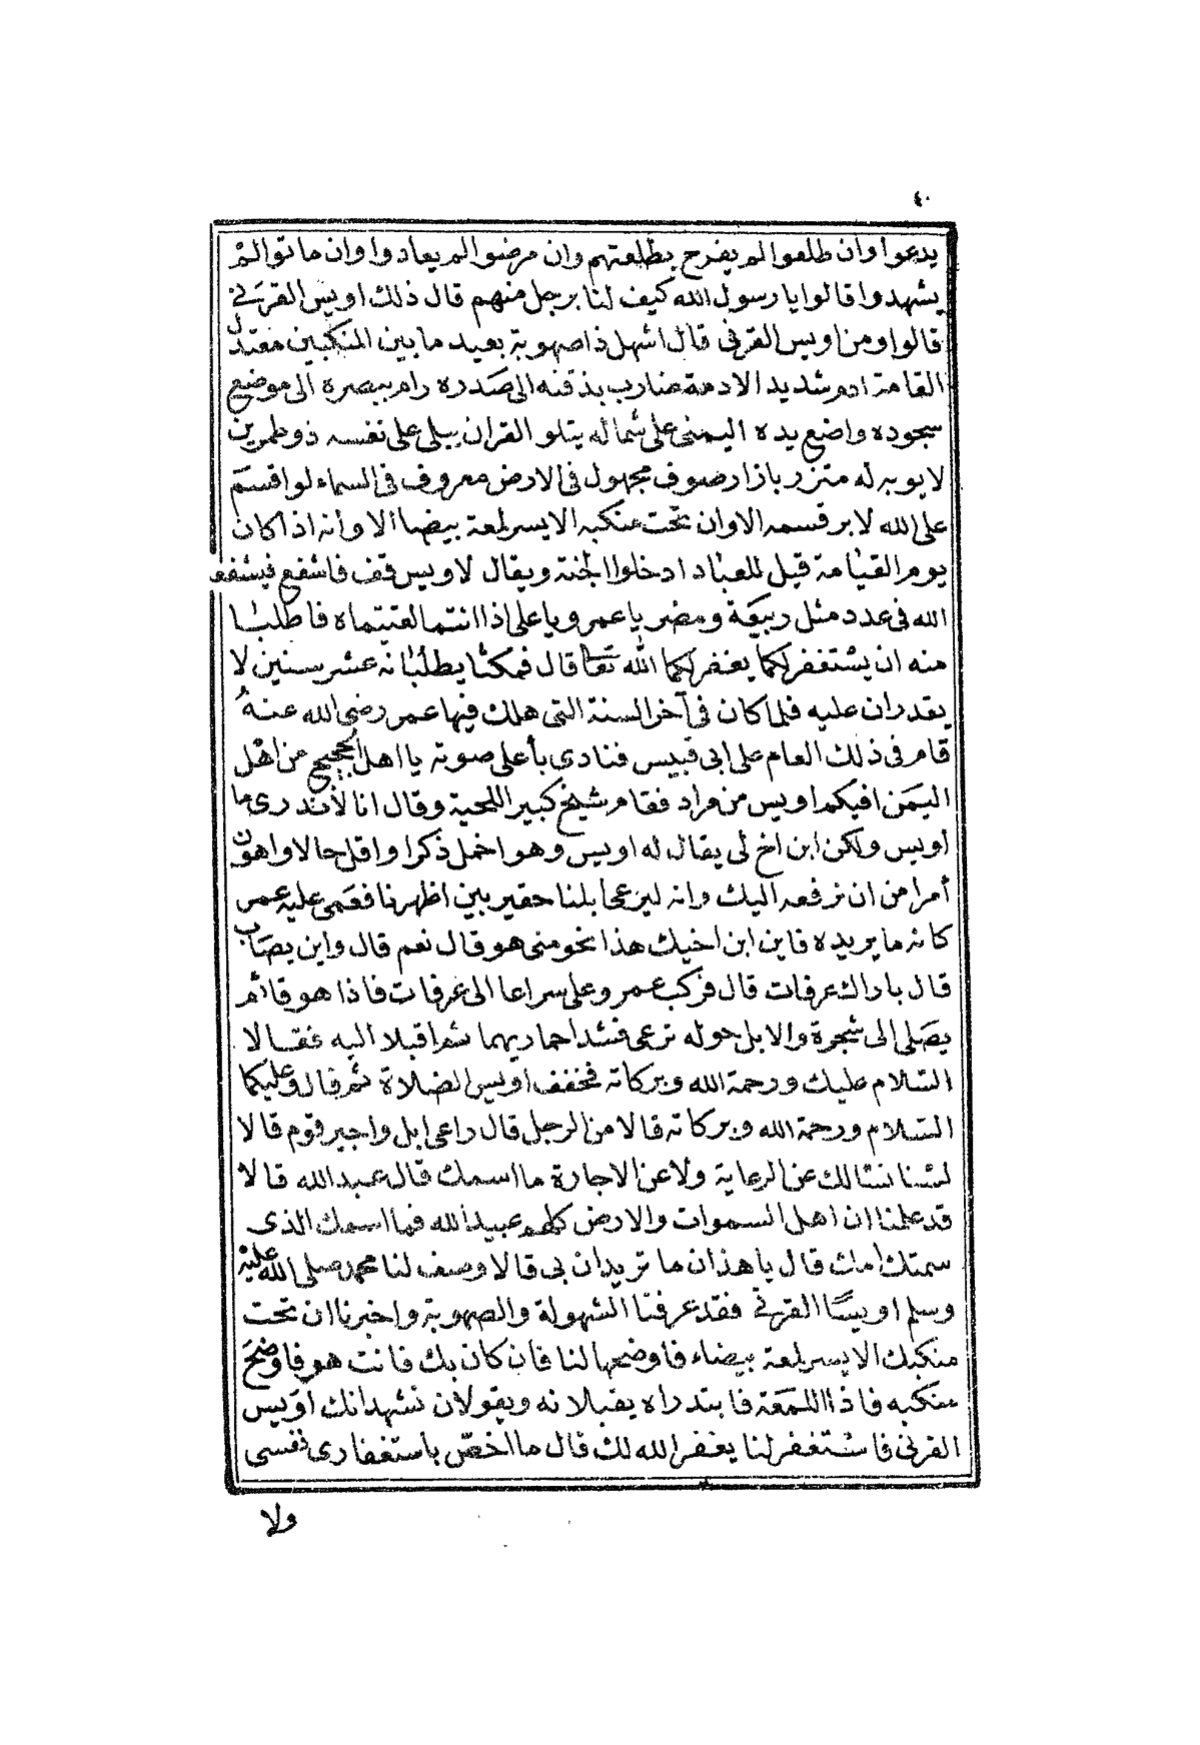 ٤٠
يدعوا وان طلعوا لم يفرح بطلعتهم وان مرضوا لم يعادوا وان ماتوا لم
يشهدوا قالوا يا رسول الله كيف لنا برجل منهم قال ذلك اويس القرني
قالوا ومن اويس القرني قال اشهل ذا صهوبة بعيد ما بين المنكبين معتدل
القامة ادم شديد الادمة ضارب بذقنه الى صدره رام ببصره الى موضع
سجوده واضع يده اليمنى على شماله يتلو القران يبكى على نفسه ذو طمرين
لا يوبه له متزر بازار صوف مجهول فى الارض معروف فى السماء لو اقسم
على الله لابر قسمه الا وان تحت منكبه الايسر لمعة بيضا الا وأنه اذا كان
يوم القيامة قيل للعباد ادخلوا الجنة ويقال لاويس قف فاشفع فيشفعه
الله فى عدد مثل ربيعة ومضر يا عمر ويا على اذا انتما لقيتماه فاطلبا
منه ان يستغفر لكما يغفر لكما الله تعا قال فمكثا يطلبانه عشر سنين لا
يقدران عليه فلما كان فى آخر السنة التى هلك فيها عمر رضى الله عنهُ
قام فى ذلك العام على ابى قبيس فنادى بأعلى صوته يا اهل الحجيج من اهْل
اليمَن افيكم اويس من مراد فقام شيخ كبير اللحية وقال انا لا ندرى ما
اويس ولكن ابن اخ لى يقال له اويس وهو اخمل ذكرا واقل حالا واهون
أمرا من ان نرفعه اليك وانه ليرعى ابلنا حقير بين اظهرنا فعمى عليه عمر
كانه ما يريده فاين ابن اخيك هذا بحرمنى هو قال نعم قال واين يصَاب
قال باراك عرفات قال فركب عمر وعلى سراعا الى عرفات فاذا هو قائم
يصَلى الى شجرة والابل حوله ترعى فشدا حماريهما ثم اقبلا اليه فقالا
السّلام عليك ورحمة الله وبركاته فخفف اويس الصلاة ثم قال وعليكما
السّلام ورحمة الله وبركاته قالا من الرجل قال راعى ابل واجير قوم قالا
لسْنا نسْالك عن الرعاية ولا عن الاجارة ما اسمك قال عبد الله قالا
قد علمنا ان اهل السموات والارض كلهم عبيد الله فما اسمك الذى
سمتك امك قال يا هذان ما تريدان بى قالا وصف لنا محمد صلى الله عليْه
وسلم اويسًا القرني فقد عرفنا الشهولة والصهوبة واخبرنا ان تحت
منكبك الايسر لمعة بيضاء فاوضحها لنا فان كان بك فانت هو فاوضحَ
منكبه فاذا اللمعَة فابتدراه يقبلانه ويقولان نشهد انك اوَيس
القرنى فاسْتغفر لنا يغفر الله لك قال ما اخصّ باستغفارى نفسى
ولا